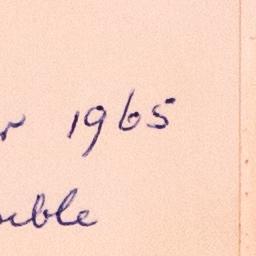 r 1965
ible